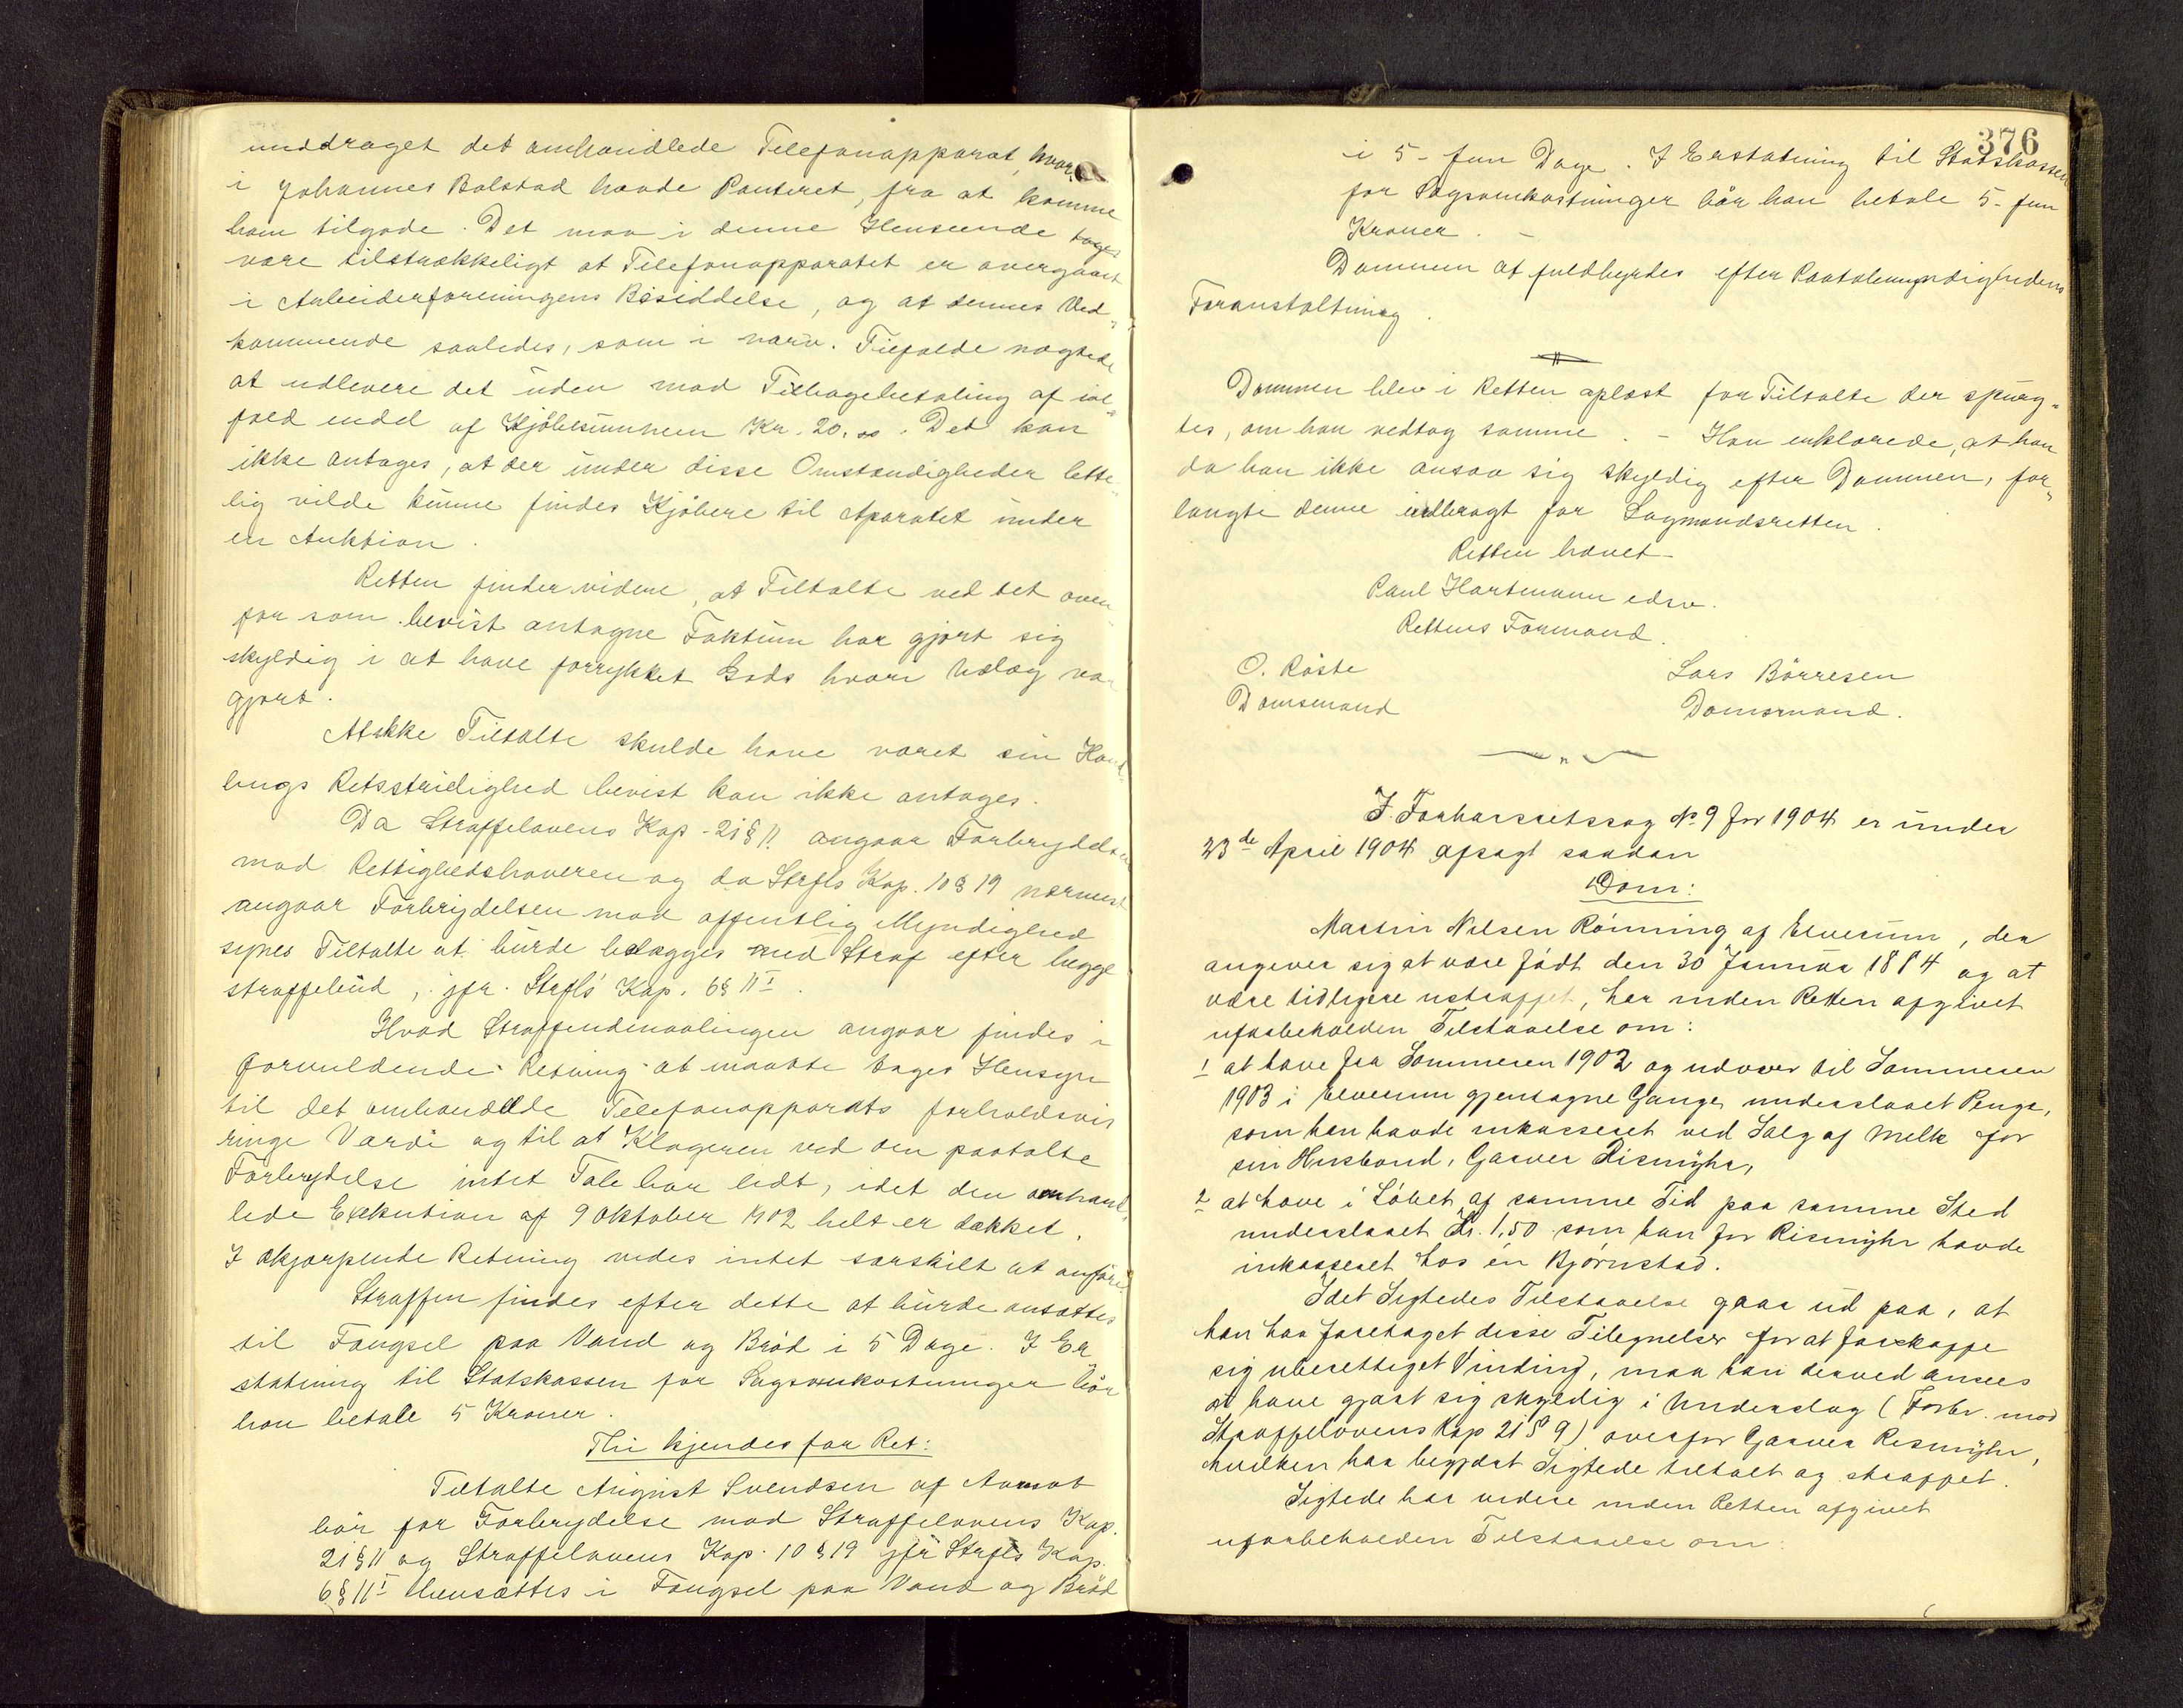 unddraget det omhandlede Telefonapparat, hvor-
i Johannes Bolstad havde Panteret, fra at komme
ham tilgode. Det maa i denne Henseende tages
være tilstrækkeligt at Telefonapparatet er overgaaet
i Arbeiderforeningens Besiddelse, og at dennes Ved-
kommende saaledes, som i nærv. Tilfælde nægtede
at udlevere det uden mod Tilbagebetaling af ial-
fald endel af Kjöbesummen Kr. 20.00. Det kan
ikke antages, at der under disse Omstændigheder lette-
lig vilde kunne findes Kjöbere til Aparatet under
en Auktion.
Retten finder videre, at Tiltalte ved det oven-
for som bevist antagne Faktum har gjort sig
skyldig i at have forrykket Gods hvori Udlæg var
gjort.
At ikke Tiltalte skulde have været sin Hand-
lings Retsstridighed bevist kan ikke antages.
Da Straffelovens Kap. 21 § 11 angaar Forbrydelsen
mod Rettighedshaveren og da Strfls Kap. 10 § 19 nærmest
angaar Forbrydelsen mod offentlig Myndighed
synes Tiltalte at burde belægges med Straf efter begge
straffebud, jfr. Strfl's Kap. 6 § 11 I.
Hvad Straffeudmaalingen angaar findes i
formildende Retning at maatte tages Hensyn
til det omhandlede Telefonapparats forholdsvis
ringe Værdi og til at Klageren ved den paatalte
Forbrydelse intet Tab har lidt, idet den omhand-
lede Exekution af 9 Oktober 1902 helt er dækket.
I skjærpende Retning vides intet særskilt at anføres
Straffen findes efter dette at burde ansættes
til Fængsel paa Vand og Bröd i 5 Dage. I Er
statning til Statskassen for Sagsomkostninger bör
han betale 5 Kroner.
Thi kjendes for Ret:
Tiltalte August Svendsen af Aamot
bör for Forbrydelse mod Straffelovens Kap.
21 § 11 og Straffelovens Kap. 10 § 19 jfr Strfls Kap.
6 § 11 I hensættes i Fængsel paa Vand og Bröd
376
i 5 - fem Dage. I Erstatning til Statskassen
for Sagsomkostninger bör han betale 5 - fem
Kroner. -
Dommen at fuldbyrdes efter Paatalemyndighedens
Foranstaltning.
Dommen blev i Retten oplæst for Tiltalte der spurg-
tes, om han vedtog samme. - Han erklærede, at han
da han ikke ansaa sig skyldig efter Dommen, for-
langte denne indbragt for Lagmandsretten.
Retten hævet -
Paul Hartmann edsv.
Rettens Formand.
O. Röste
Lars Börresen
Domsmand
Domsmand.
I Forhørsretssag No 9 for 1904 er under
23de April 1904 afsagt saadan
Dom:
Martin Nilsen Rönning af Elverum, der
angiver sig at være födt den 30 Januar 1884 og at
være tidligere ustraffet, har inden Retten afgivet
uforbeholden Tilstaaelse om:
1 at have fra Sommeren 1902 og udover til Sommeren
1903 i Elverum gjentagne Gange underslaaet Penge,
som han havde inkasseret ved Salg af Melk for
sin Husbond, Garver Rismyhr,
2 at have i Löbet af samme Tid paa samme Sted
underslaaet Kr. 1,50 som han for Rismyhr havde
inkasseret hos en Bjørnstad.
Idet Sigtedes Tilstaaelse gaar ud paa, at
han har foretaget disse Tilegnelser for at forskaffe
sig uberettiget Vinding, maa han derved ansees
at have gjort sig skyldig i Underslag (Forbr. mod
Straffelovens Kap 21 § 9) overfor Garver Rismyhr,
hvilken har begjært Sigtede tiltalt og straffet.
Sigtede har videre inden Retten afgivet
uforbeholden Tilstaaelse om: